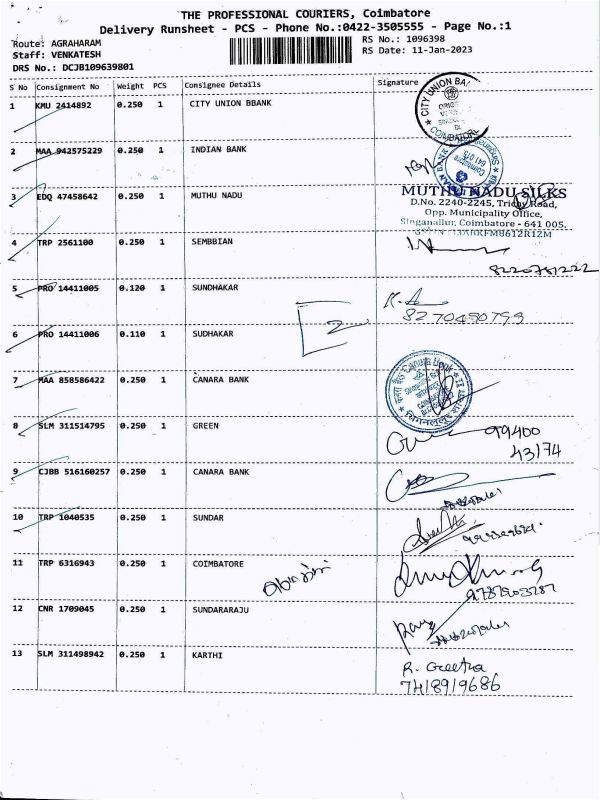 THE PROFESSIONAL COURIERS, Coimbatore
Delivery Runsheet - PCS - Phone No.:0422-3505555 - Page No.:1
Route: AGRAHARAM
RS No.: 1096398
Staff: VENKATESH
RS Date: 11-Jan-2023
DRS No.: DCJB109639801
S No Consignment No Weight PCS Consignee Details Signature
1 KMU 2414892 0.250 1 CITY UNION BBANK
CITY UNION BA
COIMBATORE
2 MAA 942575229 0.250 1 INDIAN BANK
Coimbatore
641 015
3 EDQ 47458642 0.250 1 MUTHU NADU
MUTHU NADU SILKS
D.No. 2240-2245, Trichy Road,
Opp. Municipality Office,
Singanallur, Coimbatore - 641 005.
4 TRP 2561100 0.250 1 SEMBBIAN
5 PRO 14411005 0.120 1 SUNDHAKAR
8270490799
2
6 PRO 14411006 0.110 1 SUDHAKAR
7 MAA 858586422 0.250 1 CANARA BANK
Canara Bank
8 SLM 311514795 0.250 1 GREEN
99400
43174
9 CJBB 516160257 0.250 1 CANARA BANK
10 TRP 1040535 0.250 1 SUNDAR
11 TRP 6316943 0.250 1 COIMBATORE
12 CNR 1709045 0.250 1 SUNDARARAJU
13 SLM 311498942 0.250 1 KARTHI
R. Geetha
7418919686